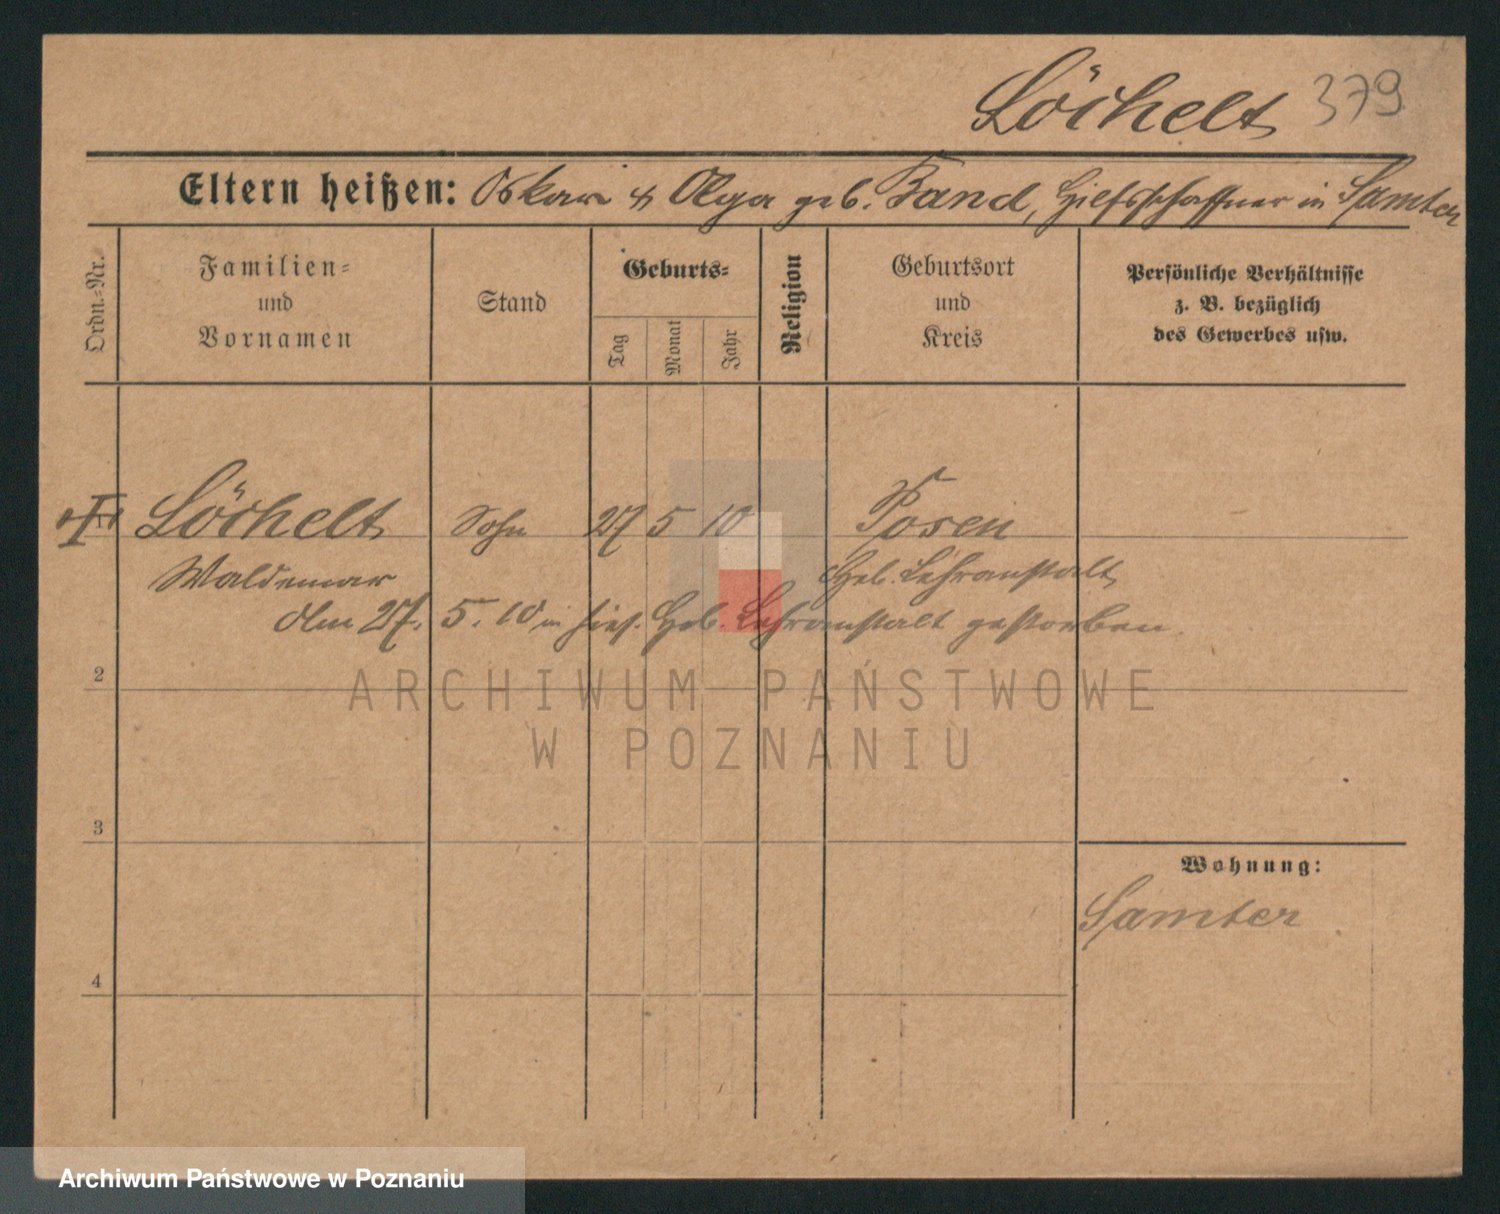 Löchelt 379
Eltern heißen: Oskar & Olga geb. Band, Hielfsschaffner in Samter
Ordn.-Nr.
Familien-
und
Vornamen
Stand
Geburts-
Tag
Monat
Jahr
Religion
Geburtsort
und
Kreis
Persönliche Verhältnisse
z. B. bezüglich
des Gewerbes usw.
Löchelt Sohn 27 5 10 Posen
Waldemar Heb. Lehranstalt
Am 27. 5. 10 in hies. Heb. Lehranstalt gestorben.
2
ARCHIWUM PAŃSTWOWE
W POZNANIU
3
Wohnung:
Samter
4
Archiwum Państwowe w Poznaniu